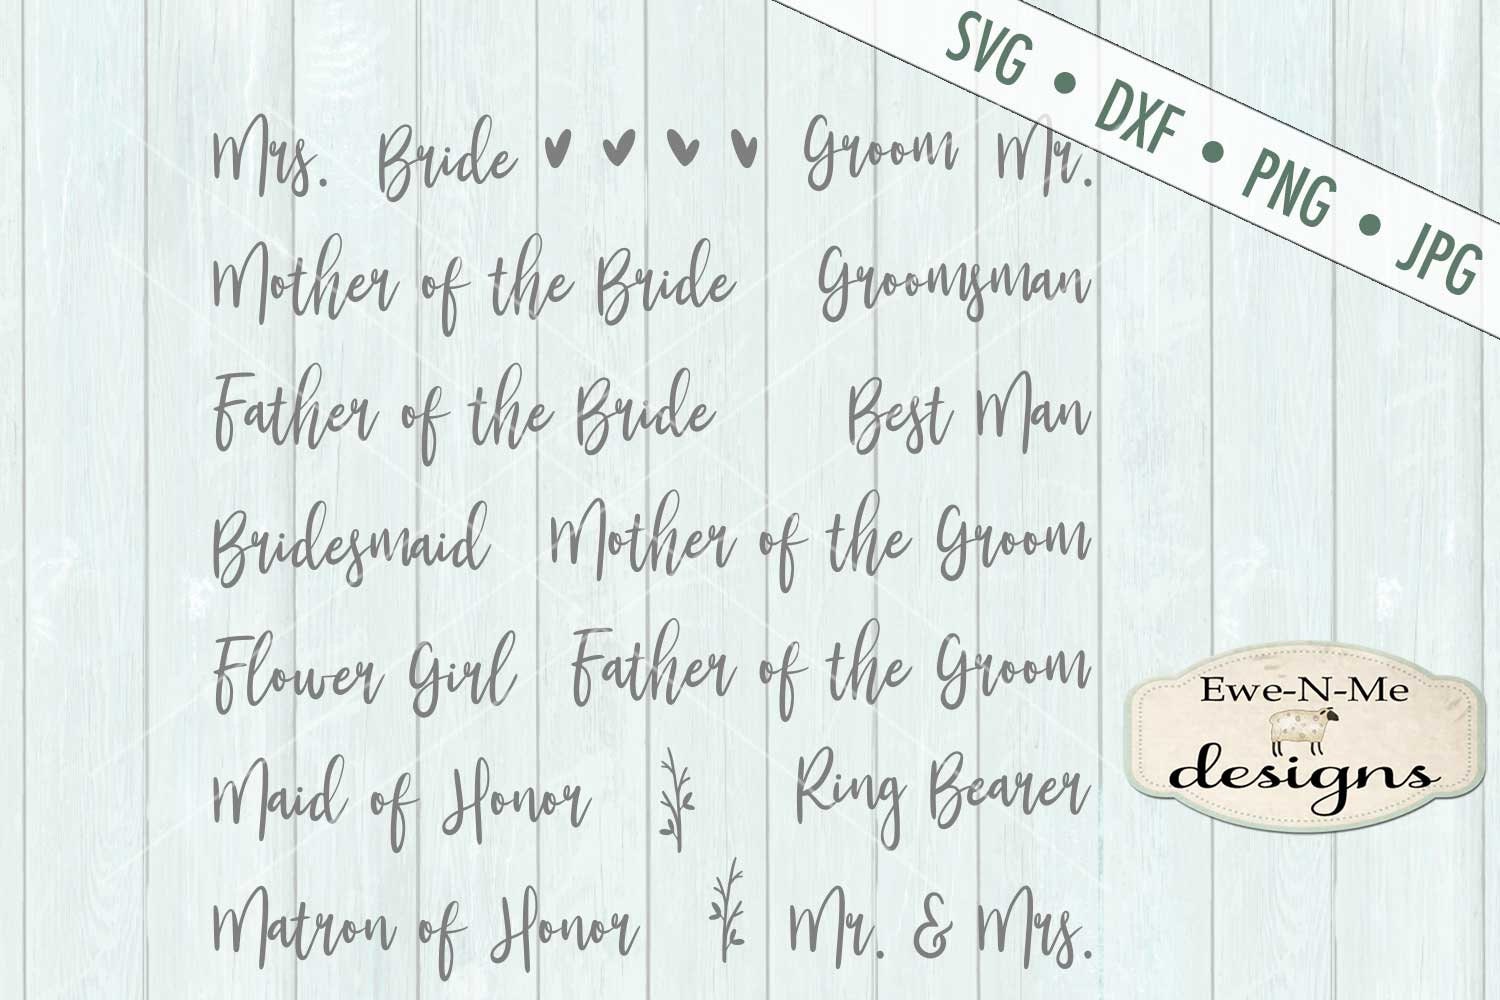 SVG • DXF • PNG • JPG
Mrs. Bride Groom Mr.
Mother of the Bride Groomsman
Father of the Bride Best Man
Bridesmaid Mother of the Groom
Flower Girl Father of the Groom
Maid of Honor Ring Bearer
Matron of Honor Mr. & Mrs.
Ewe-N-Me
designs